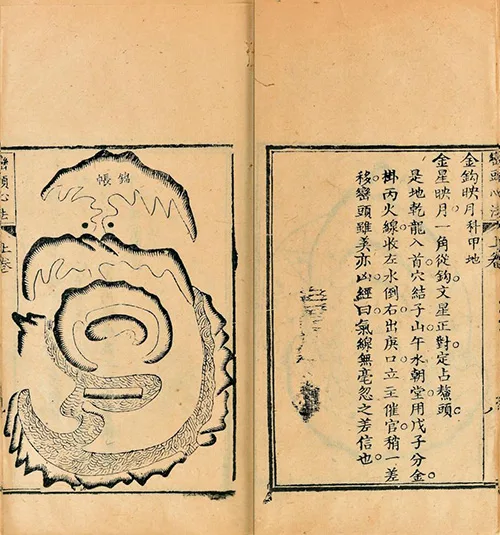 巒頭心法
上卷
金鈎映月科甲地
金星映月一角從鈎文星正對定占鰲頭
是地乾龍入首穴結子山午水朝堂用戊子分金
掛丙火線收左水倒右出庚口立主催官稍一差
移巒頭雖美亦凶經曰氣線無毫忽之若信也
帳
巒頭心法
上卷